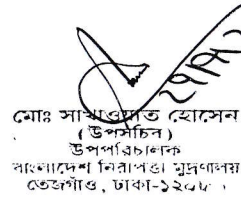 মোঃ সাখাওয়াত হোসেন
( উপসচিব )
উপপরিচালক
বাংলাদেশ নিরাপত্তা মুদ্রণালয়
তেজগাঁও, ঢাকা-১২০৮ ।